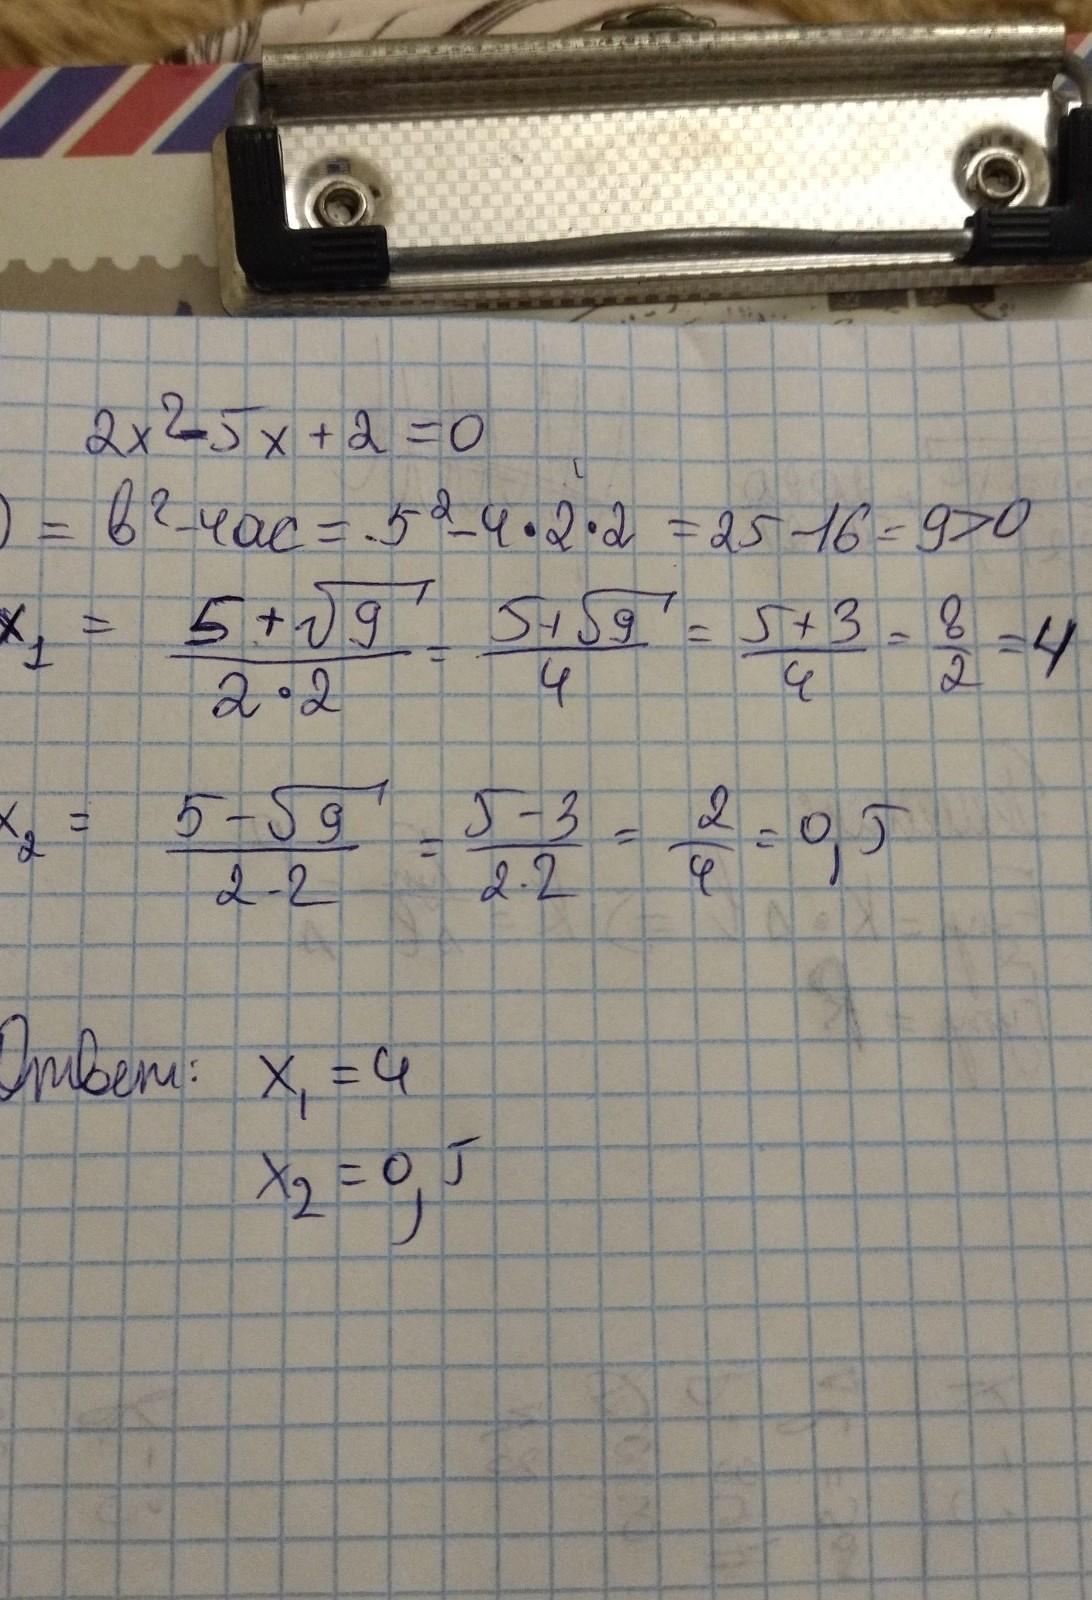 2x²-5x+2=0
D = b²-4ac = 5²-4·2·2 = 25-16 = 9>0
x₁ = (5+√9)/(2·2) = (5+√9)/4 = (5+3)/4 = 8/2 = 4
x₂ = (5-√9)/(2·2) = (5-3)/(2·2) = 2/4 = 0,5
Ответ: x₁ = 4
x₂ = 0,5